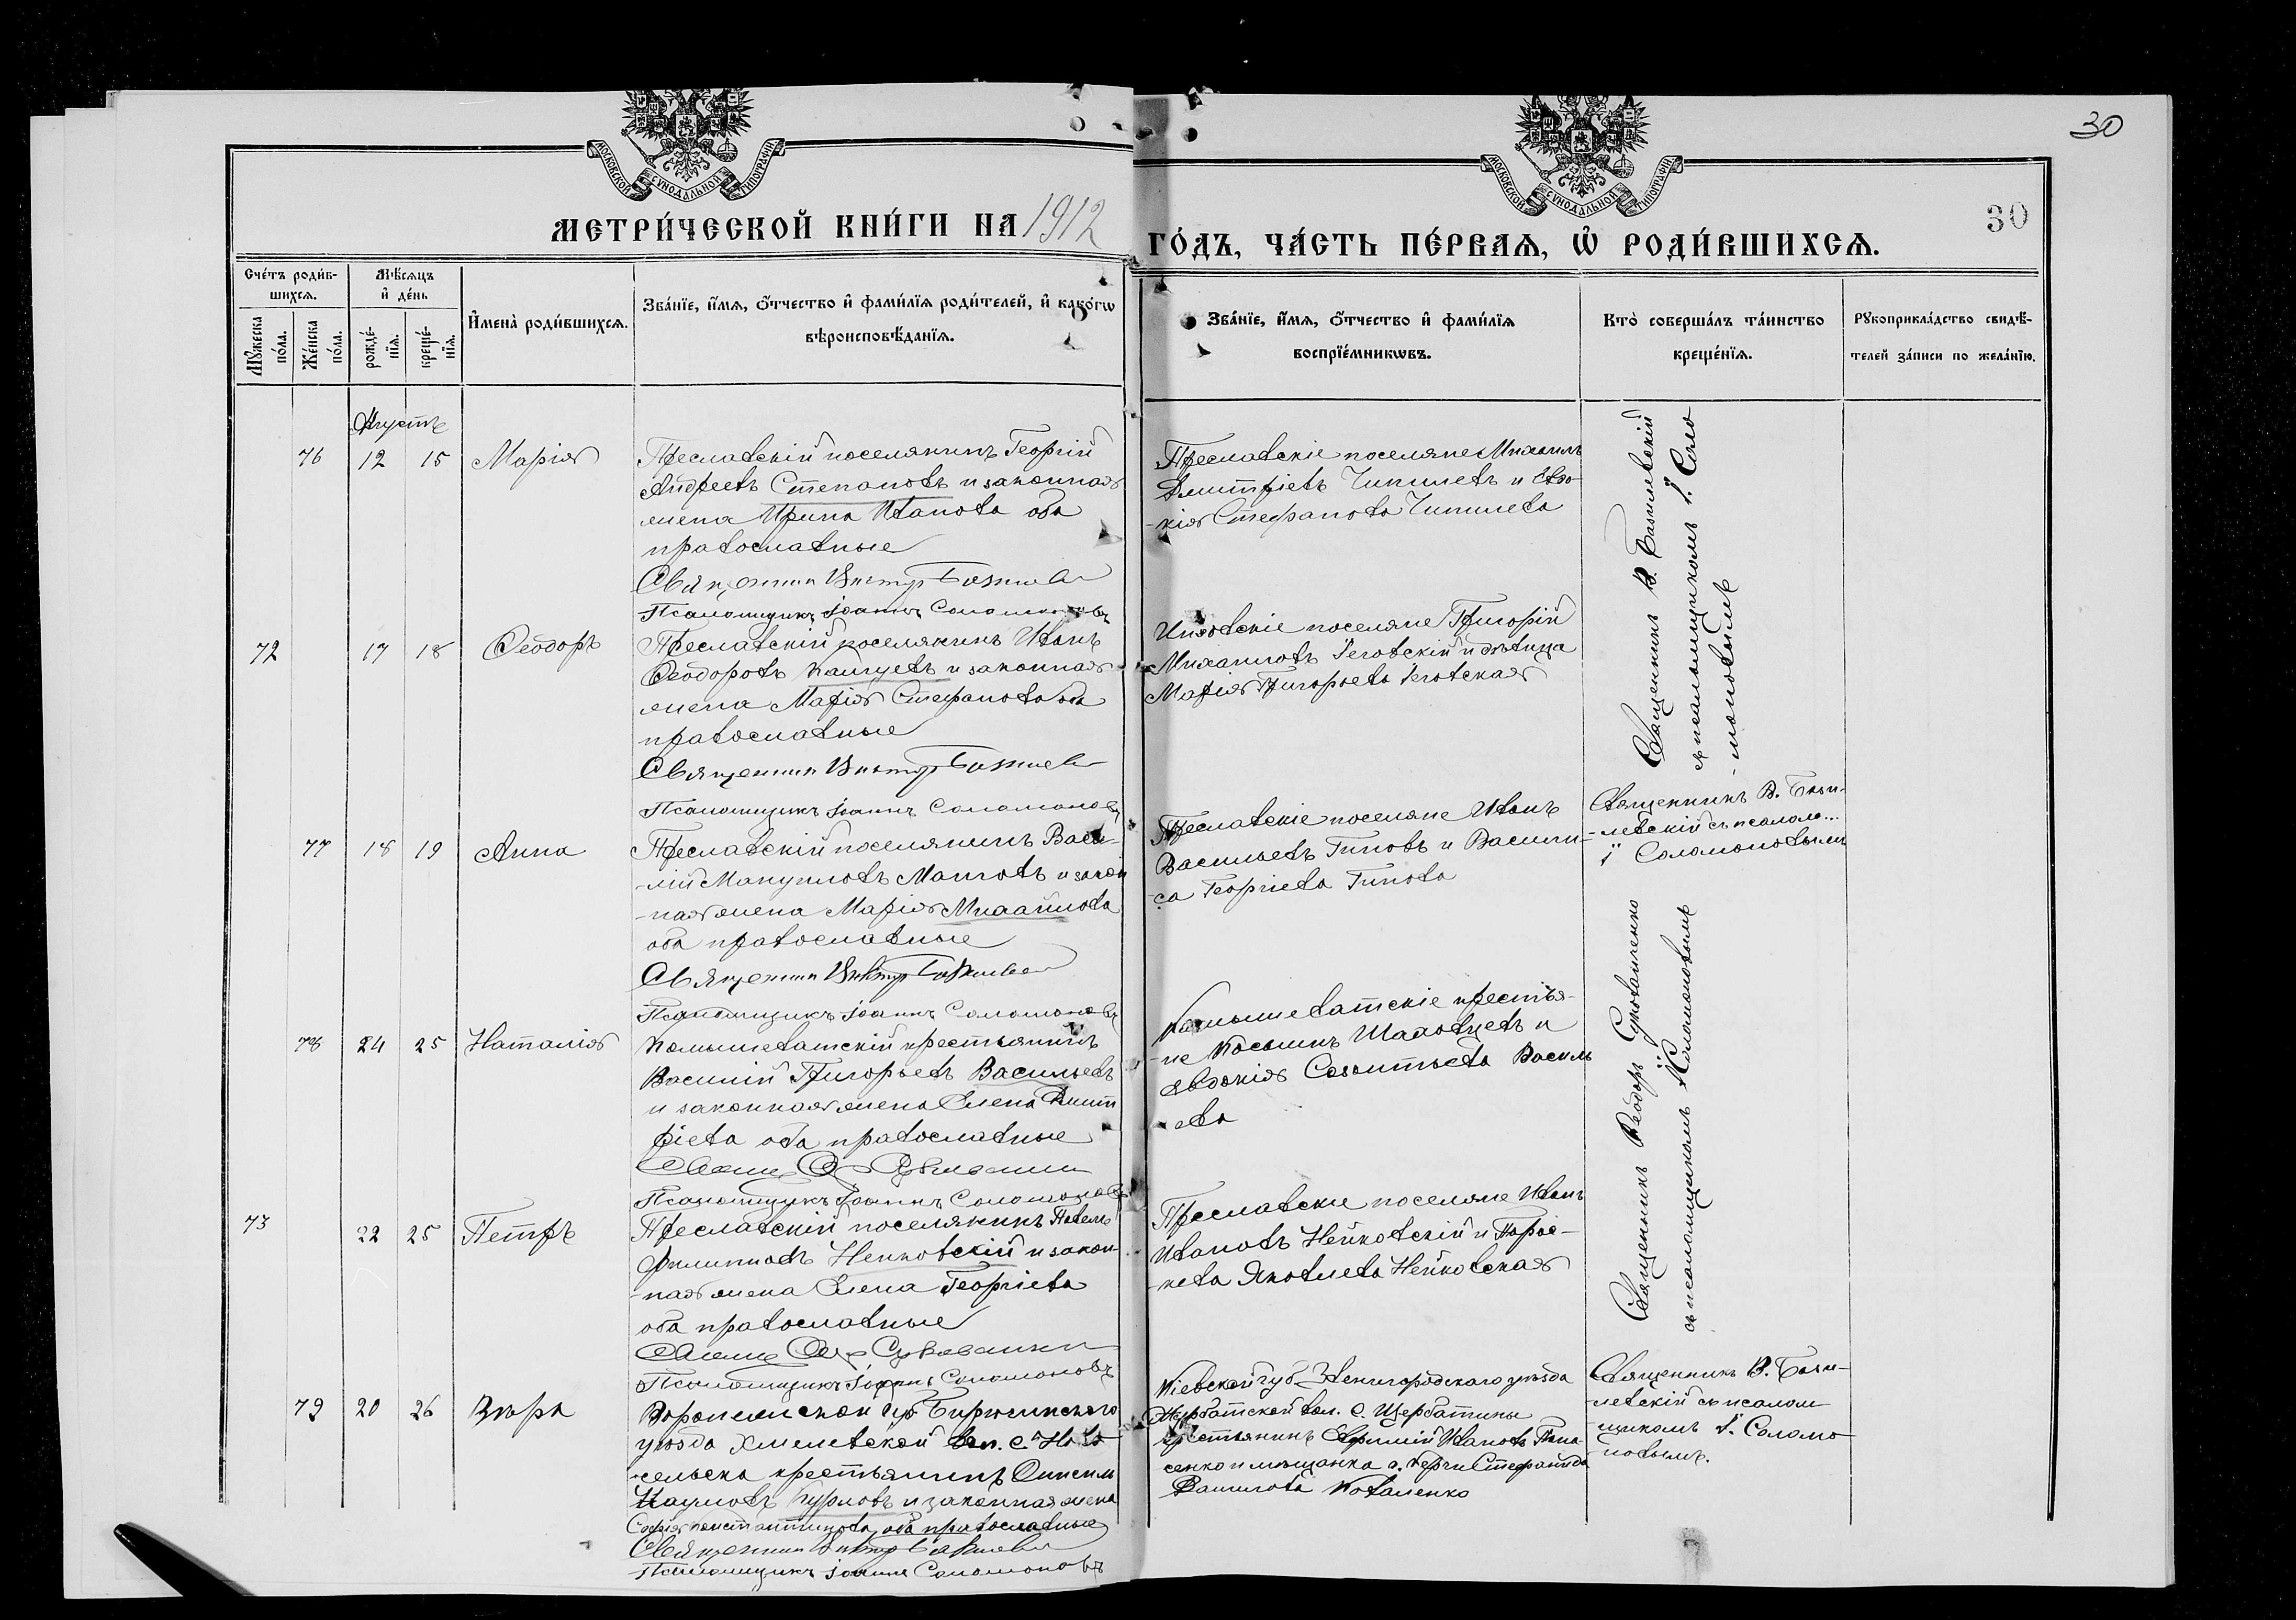 30
МОСКОВСКОЙ СУНОДАЛЬНОЙ ТИПОГРАФІИ
МОСКОВСКОЙ СУНОДАЛЬНОЙ ТИПОГРАФІИ
30
МЕТРИ́ЧЕСКОЙ КНИ́ГИ НА 1912
ГО́ДЪ, ЧА́СТЬ ПЕ́РВАѦ, Ѽ РОДИ́ВШИХСѦ.
Сче́тъ роди́в-
шихсѧ.
Мѣ́сѧцъ
и҆ де́нь
Мꙋ́жеска
по́ла.
Же́нска
по́ла.
рожде́-
нїѧ.
креще́-
нїѧ.
И҆мена̀ роди́вшихсѧ.
Зва́нїе, и҆́мѧ, ѻ҆́тчество и҆ фами́лїѧ роди́телей, и҆ како́гѡ
вѣроисповѣ́данїѧ.
Зва́нїе, и҆́мѧ, ѻ҆́тчество и҆ фами́лїѧ
воспрїе́мникѡвъ.
Кто̀ соверша́лъ та́инство
креще́нїѧ.
Рꙋкоприкла́дство свидѣ́-
телей за́писи по жела́нїю.
Августъ
76 12 15 Марія
Преславскій поселянинъ Георгій
Андреевъ Степановъ и законная
жена Ирина Иванова оба
православные
Священник Виктор
Псаломщикъ Іоаннъ Соломоновъ
Преславскіе поселяне Михаилъ
Дмитріевъ Чипилевъ и Евдо-
-кія Стефанова Чипилева
Священникъ В. Базилевскій
съ псаломщикомъ І. Соло
-моновымъ
72 17 18 Ѳеодоръ
Преславскій поселянинъ Иванъ
Ѳеодоровъ и законная
жена Марія Стефанова оба
православные
Священник Виктор
Псаломщикъ Іоаннъ Соломоновъ
поселяне Григорій
Михаиловъ и дѣвица
Марія Григорьева
77 18 19 Анна
Преславскій поселянинъ Васи-
-лій Мануиловъ и закон
-ная жена Марія Михайлова
оба православные
Священник Виктор
Псаломщикъ Іоаннъ Соломоновъ
Преславскіе поселяне Иванъ
Васильевъ Гиновъ и Васили-
-са Георгіева Гинова
Священникъ В. Бази-
-левскій съ псалом...
І Соломоновымъ
78 24 25 Наталія
Камышеватскій крестьянинъ
Василій Григорьевъ Васильевъ
и законная жена Елена Дмит
ріева оба православные
Псаломщикъ Іоаннъ Соломоновъ
Камышеватскіе крестья-
-не Косьминъ и
Евдокія Васильева
Священникъ Ѳеодоръ
съ псаломщикомъ Соломоновымъ
73 22 25 Петръ
Преславскій поселянинъ Павелъ
Филипповъ Нейковскій и закон-
-ная жена Елена Георгіева
оба православные
Псаломщикъ Іоаннъ Соломоновъ
Преславскіе поселяне Иванъ
Ивановъ Нейковскій и
Яковлева Нейковская
79 20 26 Вѣра
Воронежской губ
уѣзда Хмелевской вол. с. Ново
-сельска крестьянинъ Онисим
Наумовъ Курловъ и законная жена
Софія Константинова оба православные
Священник Виктор
Псаломщикъ Іоаннъ Соломоновъ
Кіевской губ Звенигородскаго уѣзда
вол. с.
крестьянинъ Евфимій Ивановъ Пана-
сенко и мѣщанка г. Керчи Стефанида
Коваленко
Священникъ В. Бази-
левскій съ псалом
щикомъ І. Соломо
новымъ.